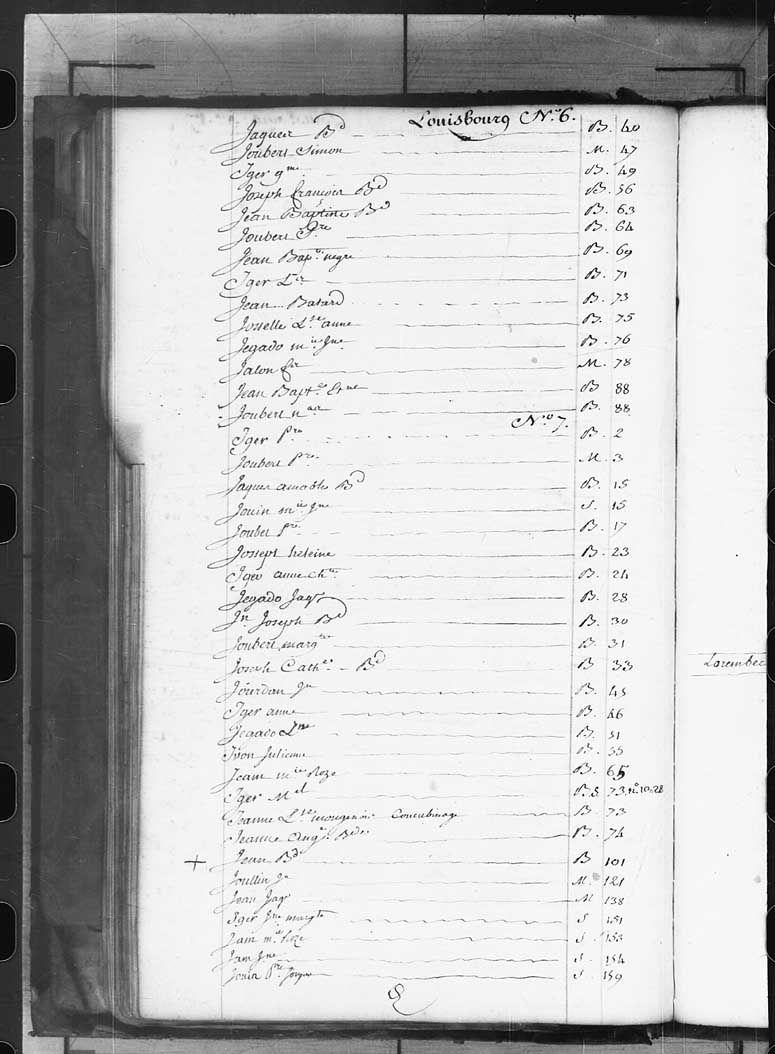 Louisbourg N.º 6.
Jaques Bd B. 40
Joubert Simon M. 47
Iger gme B. 49
Joseph francois Bd B. 56
Jean Baptiste Bd B. 63
Joubert Pre B. 64
Jean Bap.te negre B. 69
Iger Lse B. 71
Jean Batard B. 73
Josselle Lse anne B. 75
Jegado mie Jne B. 76
Jalon M. 78
Jean Bapt.e Etne B 88
Joubert B. 88
N.º 7.
Iger Pre B. 2
Joubert Pre M. 3
Jaques amable Bd B. 15
Jouin mie Jne S. 15
Joubet pre B. 17
Josseph heleine B. 23
Iger anne Ch.te B. 24
Jegado Jaqs B. 28
Jn Joseph Bd B. 30
Joubert margte B. 31
Joseph Cath.ne Bd B 33
Jourdan Jn B. 45
Iger anne B. 46
Jegado Lse B. 51
Yvon Julienne B. 55
Jeam mie Roze B. 65
Iger Mel B S. 73 n.º 10.28
Jeanne Lse Concubinage B. 73
Jeanne Angq. Bde B. 74
+ Jean Bd B 101
Joullin Jn M. 121
Jean Jaqs M 138
Iger Jne margte S 151
Jam mie Roze S. 153
Jam Jne S. 154
Jouin Pre Jaques S 159
Lorembec